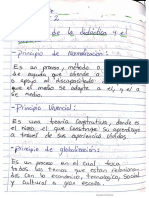 de la didáctica y el
-principio de Normalización:
Es un proceso, método o
de ayuda que atiende a
o apoyo a discapacitado
que el medio se adapte a el, y a
medio.
-Principio Vivencial:
Es una teoría Cognitiva, donde es
el niño el que construye Su aprendizaje
a través de sus experiencias vividas.
-principio de globalización:
Es un proceso en el cual toca
todos los temas que estan relaciona-
dos con lo económico, Tecnológico, Social
y Cultural a gran escala.